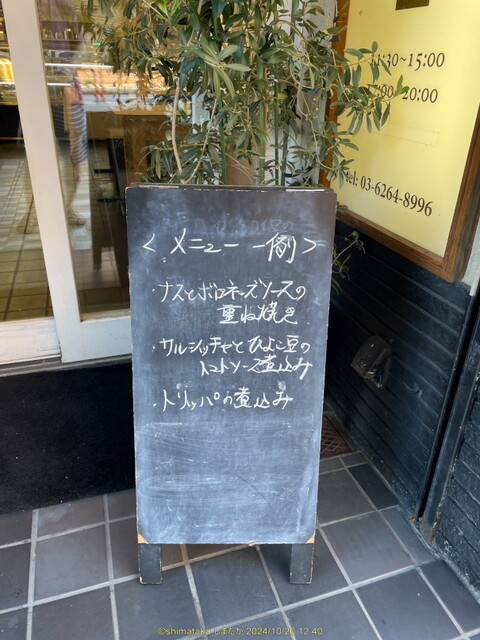 11:30~15:00
:00~20:00
tel: 03-6264-8996
< メニュー 一例 >
・ナスとボロネーズソースの
重ね焼き
・サルシッチャとひよこ豆の
トマトソース煮込み
・トリッパの煮込み
©shimataka しまたか 2024/10/20 12:40